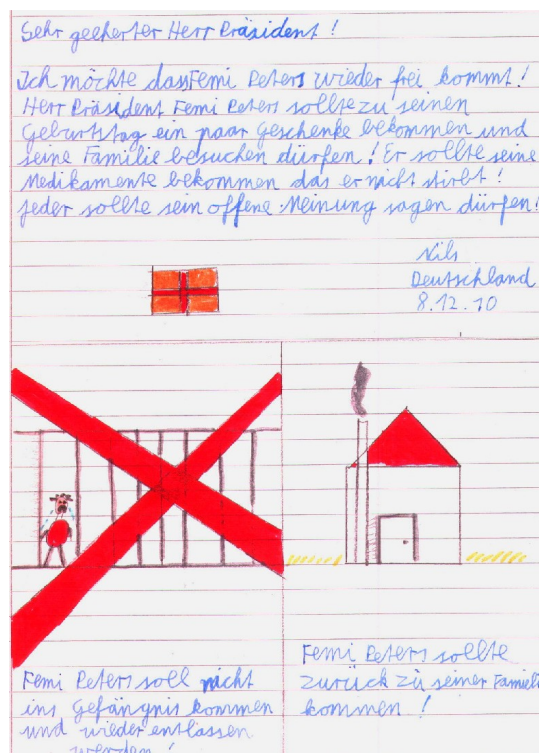 Sehr geeherter Herr Präsident !
Ich möchte dass Femi Peters wieder frei kommt !
Herr Präsident Femi Peters sollte zu seinen
Geburtstag ein paar Geschenke bekommen und
seine Familie besuchen dürfen ! Er sollte seine
Medikamente bekommen das er nicht stirbt !
Jeder sollte sein offene Meinung sagen dürfen !
Nils
Deutschland
8.12.10
Femi Peters soll nicht
ins Gefängnis kommen
und wieder entlassen
werden !
Femi Peters sollte
zurück zu seiner Famieli
kommen !